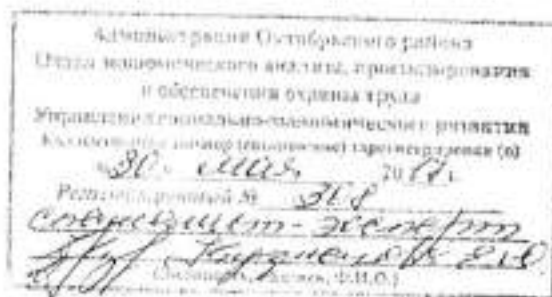 Администрация Октябрьского района
Отдел экономического анализа, прогнозирования
и обеспечения охраны труда
Управления социально-экономического развития
Коллективный договор (соглашение) зарегистрирован (о)
«30» мая 2017 г.
Регистрационный № 308
специалист-эксперт
(Должность, подпись, Ф.И.О.)